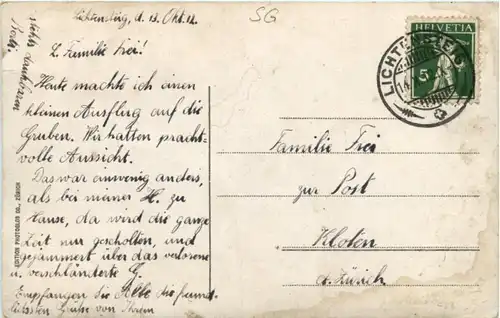 Lichtensteig, d. 13. Okt. 12.
SG
L. Familie Frei!
Heute machte ich einen
kleinen Ausflug auf die
Gruben. Wir hatten pracht-
volle Aussicht.
Das war einwenig anders,
als bei meiner H. zu
Hause, da wird die ganze
Zeit nur gescholten, und
gejammert über das verlorene
u. verschländerte G.
Empfangen Sie Alle die freund-
lichsten Grüße von Ihrem
stets dankbaren
EDITION PHOTOGLOB CO., ZÜRICH
HELVETIA
5
LICHTENSTEIG
Familie Frei
zur Post
Kloten
ct. Zürich